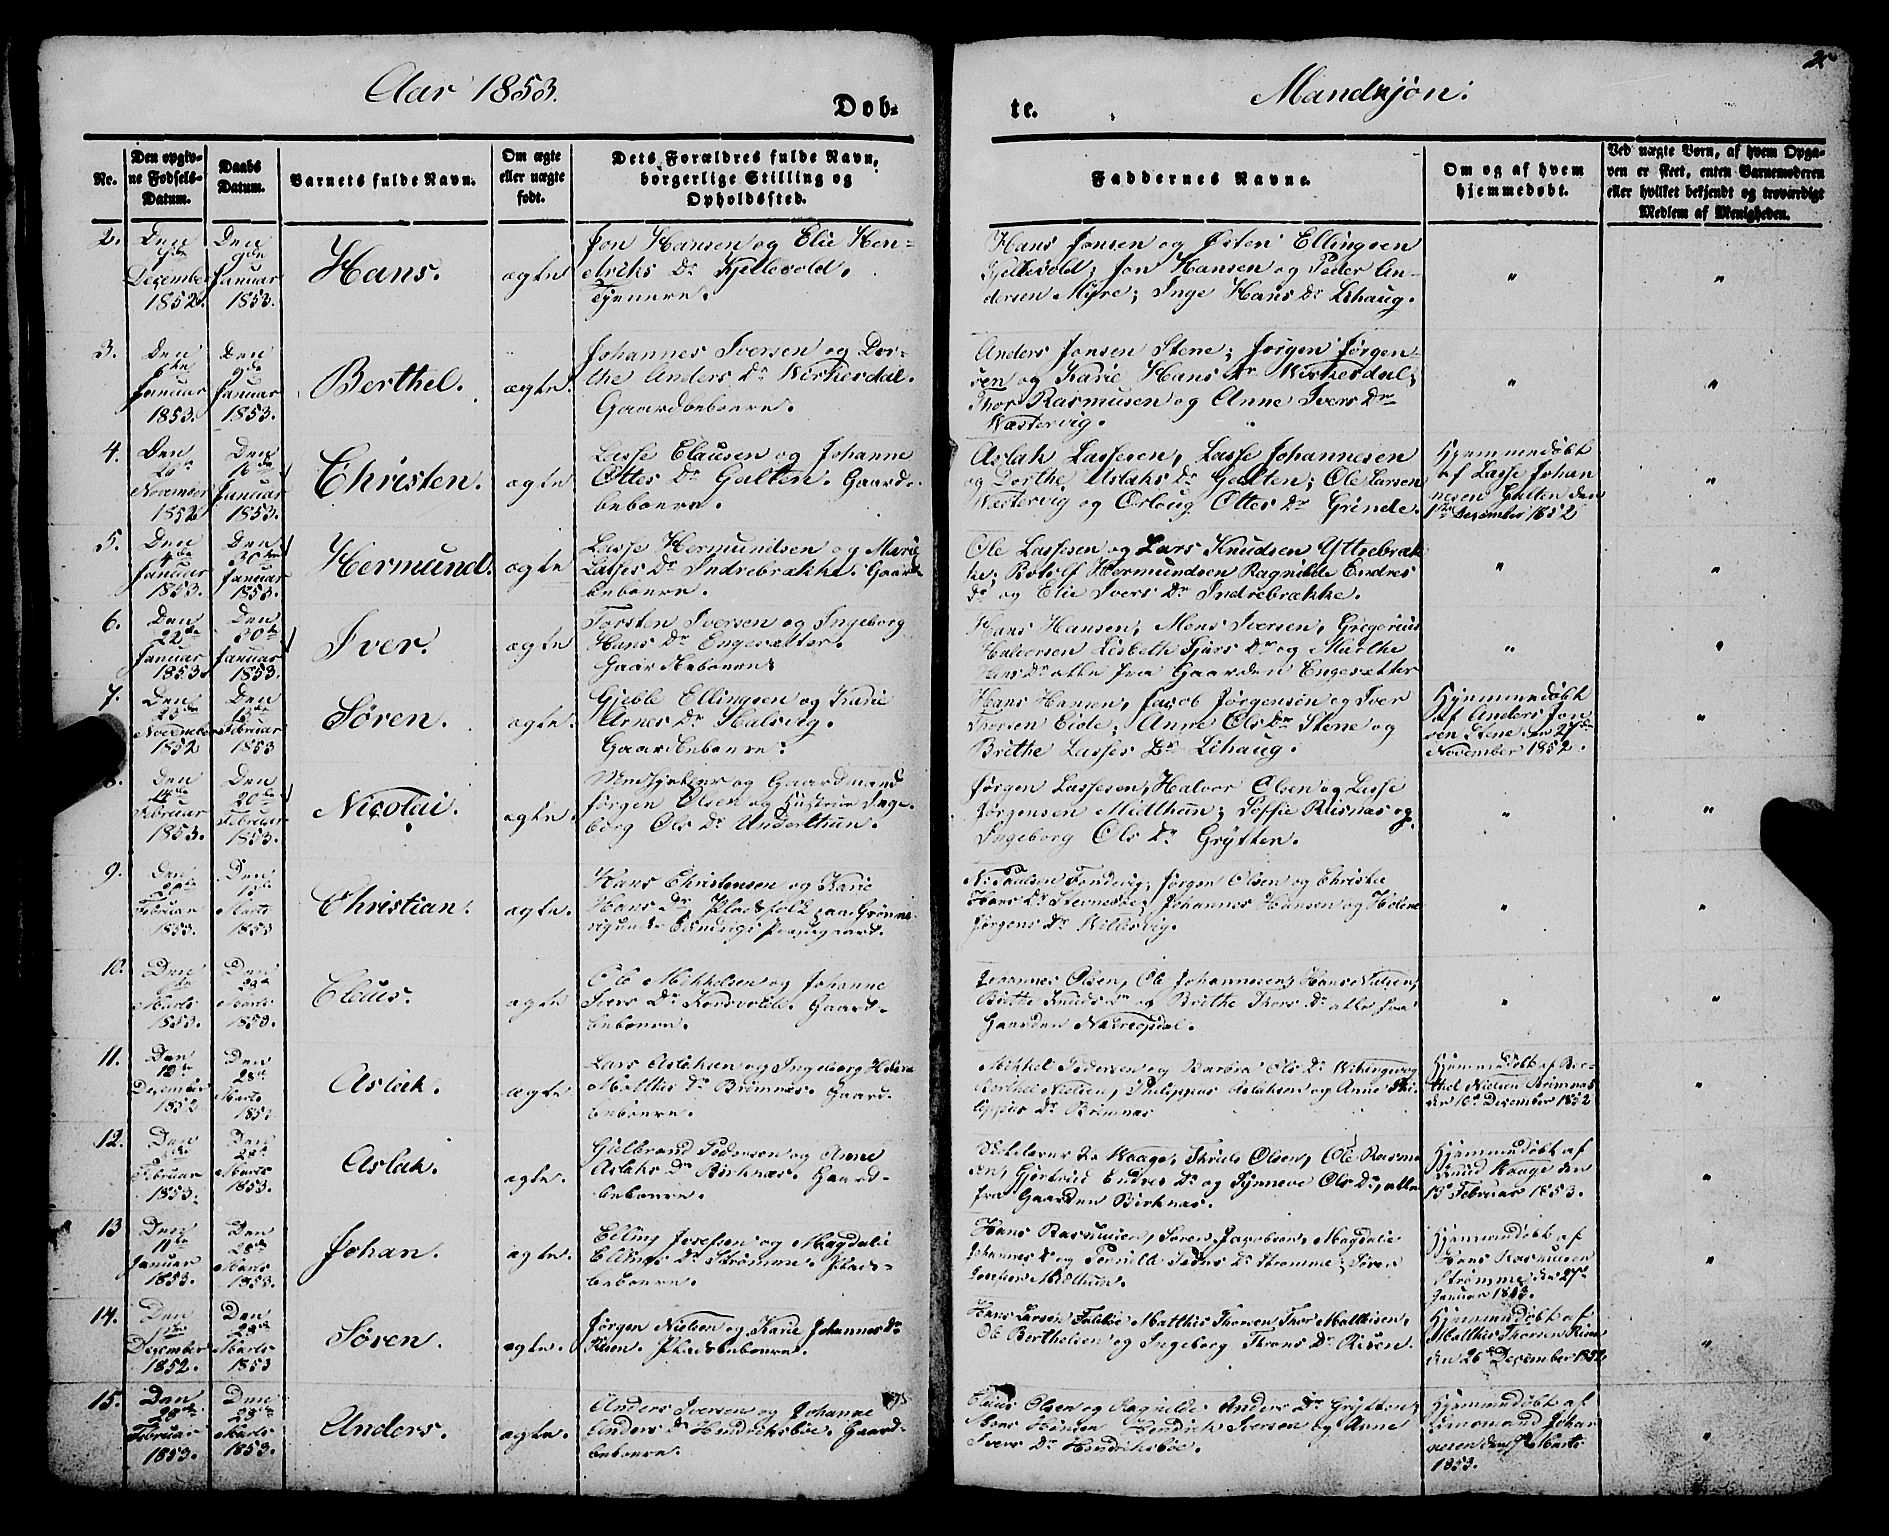 Aar 1853.
Døb-
te.
Mandkjøn:
Nr.
Den opgiv-
ne Fødsels-
Datum.
Daabs
Datum.
Barnets fulde Navn.
Om ægte
eller uægte
født.
Dets Forældres fulde Navn,
borgerlige Stilling og
Opholdssted.
Faddernes Navne.
Om og af hvem
hjemmedøbt.
Ved uægte Børn, af hvem Opga-
ven er skeet, enten Barnemoderen
eller hvilket bekjendt og troværdigt
Medlem af Menigheden.
2.
Den
December
1852.
Den
9de
Januar
1853.
Hans.
ægte
Jon Hansen og Elie Hen-
driks Dr Kjellevold.
Tjenere.
Hans Jonsen og Østen Ellingsen
Kjellevold; Jon Hansen og Peder An-
dersen Myre; Inge Hans Dr Lihaug.
3.
Den
Januar
1853.
Den
9de
Januar
1853.
Berthel.
ægte.
Johannes Iversen og Dor-
the Anders Dr Wirkesdal.
Gaardbeboere.
Anders Jonsen Stene; Jørgen Jørgen-
sen og Karie Hans Dr Wirkesdal;
Thor Rasmusen og Anne Ivers Dr
Wæstervig.
4.
Den
November
1852
Den
16de
Januar
1853.
Christen.
ægte
Lasse Clausen og Johanne
Ottes Dr Galten. Gaard-
beboere.
Aslak Lassesen, Lasse Johannesen
og Dorthe Aslaks Dr Galten; Ole Larsen
Wæstervig og Orloug Ottes Dr Grinde.
Hjemmedøbt
af Lasse Johan
nesen Galten den
December 1852
5.
Den
4de
Januar
1853.
Den
30de
Januar
1853.
Hermund.
ægte
Lasse Hermundsen og Marie
Lasses Dr Indrebrække. Gaard
beboere.
Ole Lassesen og Lars Knudsen Yttrebræk
ke; Rotolf Hermundsen Ragnilde Endres
Dr og Elie Ivers Dr Indrebrække.
6.
Den
22de
Januar
1853.
Den
30de
Januar
1853.
Iver.
ægte
Torsten Iversen og Ingeborg
Hans Dr Engesætter.
Gaardbeboere.
Hans Hansen, Mons Iversen, Gregorius
Halvorsen Lisbeth Sjurs Dr og Marthe
Hans Dr alle fra Gaarden Engesætter
7.
Den
November
1852
Den
13de
Februar
1853
Søren.
ægte.
Gjeble Ellingsen og Karie
Arnes Dr Halsvig.
Gaardbeboere.
Hans Hansen, Jacob Jørgensen og Iver
Iversen Eide; Anne Ols Dr Stene og
Brithe Lasses Dr Lihaug.
Hjemmedøbt
af Anders Jon
sen Stene den 27de
November 1852.
8.
Den
14de
Februar
1853.
Den
20de
Februar
1853.
Nicolai.
ægte.
og Gaardmand
Jørgen Olsen og Hustrue Inge-
borg Ols Dr Underthun.
Jørgen Lassesen, Halvor Olsen og Lasse
Jørgensen Midthun; Sophie Risnæs og
Ingeborg Ols Dr Grytten.
9.
Den
Februar
1853.
Den
13de
Marts
1853
Christian.
ægte.
Hans Christensen og Karie
Hans Dr Pladsfolk paa Grønne-
vig under Evindvigs Præstegaard.
N. Paulsen Fondevig, Jørgen Olsen og Christie
Hans Dr Johannes Hansen og Helene
Jørgens Dr Willesvig.
10.
Den
Marts
1853.
Den
Marts
1853.
Claus.
ægte
Ole Mikkelsen og Johanne
Ivers Dr Gaard-
beboere.
Johannes Olsen, Ole Johannesen, Hans Nielsen,
Brithe Knuds Dr og Brithe Thors Dr alle fra
Gaarden
11.
Den
10de
December
1852
Den
28de
Marts
1853
Aslak.
ægte
Lars Aslaksen og Ingeborg Helene
Matthis Dr Brimnæs. Gaard-
beboere.
Mikkel Pedersen og Barbra Ols Dr
Berthel Nielsen, Philippus Aslaksen og Anne Phi-
lippus Dr Brimnæs
Hjemmedøbt af Ber-
thel Nielsen Brimnæs
den 16de December 1852
12.
Den
Februar
1853.
Den
28de
Marts
1853.
Aslak.
ægte.
Gulbrand Pedersen og Anne
Aslaks Dr Birknæs. Gaard-
beboere.
Kaage, Truls Olsen, Ole Rasmu-
sen, Gjertrud Endres Dr og Synneve Ols Dr, alle
fra Gaarden Birknæs.
Hjemmedøbt af
Knud Kaage den
13de Februar 1853.
13
Den
11te
Januar
1853.
Den
28de
Marts
1853.
Johan.
ægte.
Elling Josefsen og Magdalie
Ellings Dr Strømme. Plads-
beboere.
Hans Rasmusen, Søren Jacobsen, Magdalie
Johannes Dr og Pernille Peders Dr Strømme, Søren
Josefsen Midthun.
Hjemmedøbt af
Hans Rasmusen
Strømme den 27de
Januar 1853.
14.
Den
December
1852.
Den
28de
Marts
1853
Søren.
ægte.
Jørgen Nielsen og Karie Johannes Dr
Risen. Pladsbeboere.
Hans Larsen Matthis Thorsen Thor Matthisen,
Ole Berthelsen og Ingeborg Throns Dr Risen.
Hjemmedøbt af
Matthis Thorsen Risen
den 26de December 1852
15.
Den
28de
Februar
1853.
Den
28de
Marts
1853.
Anders.
ægte.
Anders Iversen og Johanne
Anders Dr Hendriksbøe. Gaard-
beboere.
Olsen og Ragnilde Anders Dr Grytten;
Mons Hansen Hendrik Iversen og Anne
Ivers Dr Hendriksbøe.
Hjemmedøbt af
Simon Johan
nesen den Marts
1853.